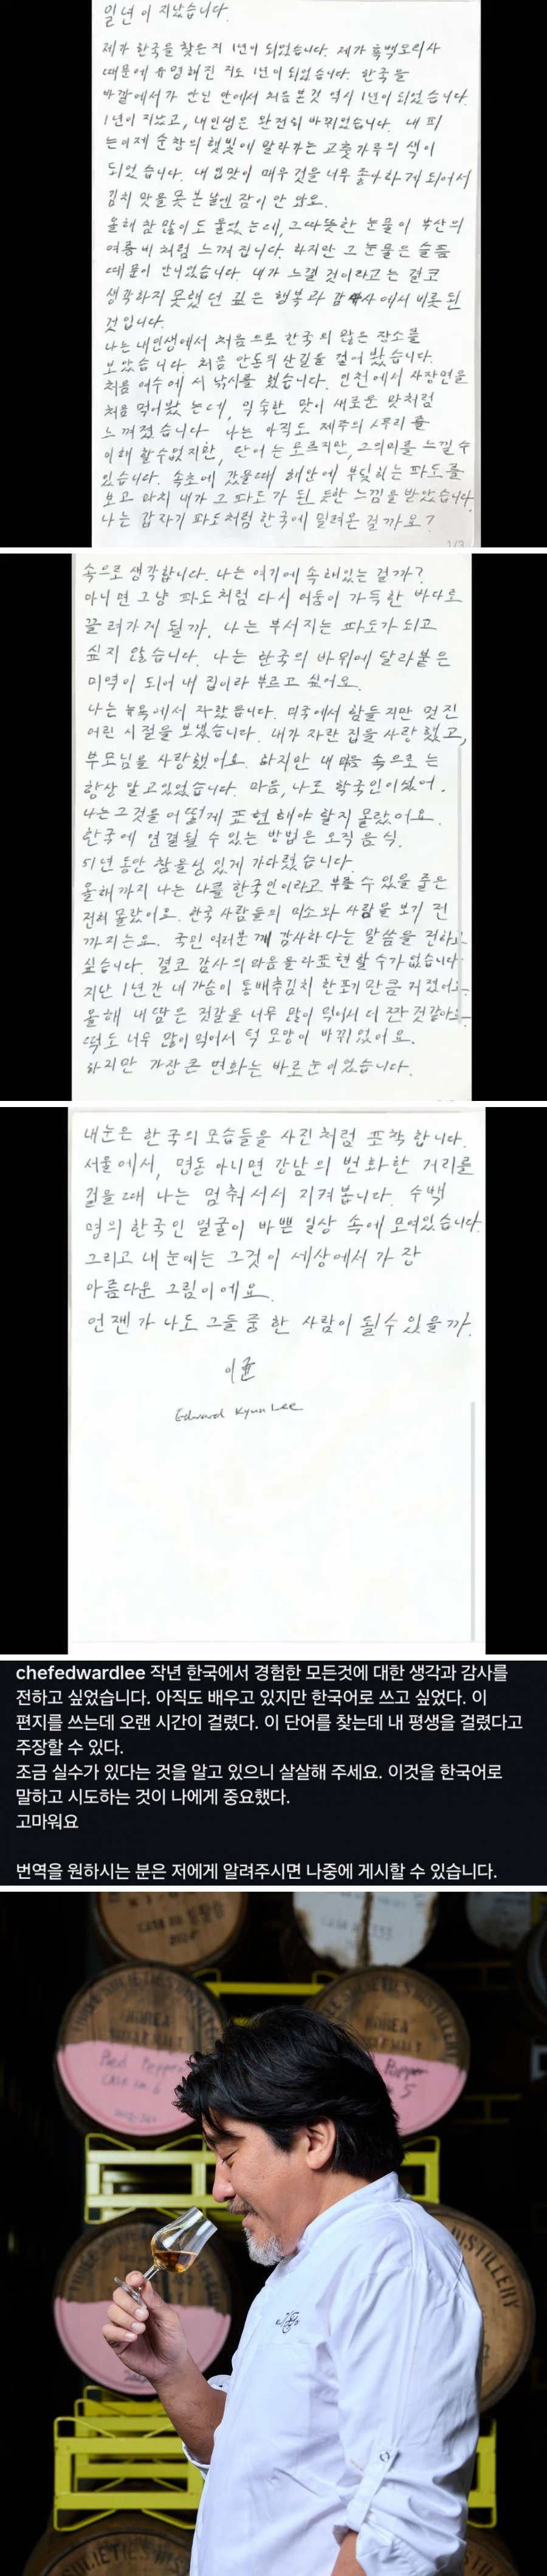 일년이 지났습니다.
제가 한국을 찾은지 1년이 되었습니다. 제가 흑백요리사
때문에 유명해진 지도 1년이 되었습니다. 한국을
바깥에서가 안닌 안에서 처음 본것 역시 1년이 되었습니다.
1년이 지났고, 내인생은 완전히 바뀌었습니다. 내 피
는 이제 순창의 햇빛에 말라가는 고춧가루의 색이
되었습니다. 내 입맛이 매우 것을 너무 좋아하게 되어서
김치 맛을 못 본 날엔 잠이 안 와요.
올해 참 많이도 울었는데, 그따뜻한 눈물이 부산의
여름비처럼 느껴집니다. 하지만 그 눈물은 슬픔
때문이 안니었습니다. 내가 느낄 것이라고는 결코
생각하지 못했던 깊은 행복과 감사에서 비롯된
것입니다.
나는 내인생에서 처음으로 한국의 많은 장소를
보았습니다. 처음 안동의 산길을 걸어 봤습니다.
처음 여수에서 낚시를 했습니다. 인천에서 자장면을
처음 먹어봤는데, 익숙한 맛이 새로운 맛처럼
느껴졌습니다. 나는 아직도 제주의 사투리를
이해 할수없지만, 단어는 모르지만, 그의미를 느낄 수
있습니다. 속초에 갔을때 해안에 부딪히는 파도를
보고 마치 내가 그 파도가 된 듯한 느낌을 받았습니다.
나는 갑자기 파도처럼 한국에 밀려온 걸까요?
1/3
속으로 생각합니다. 나는 여기에 속해있는 걸까?
아니면 그냥 파도처럼 다시 어둠이 가득한 바다로
끌려가게 될까. 나는 부서지는 파도가 되고
싶지 않습니다. 나는 한국의 바위에 달라붙은
미역이 되어 내 집이라 부르고 싶어요.
나는 뉴욕에서 자랐습니다. 미국에서 힘들지만 멋진
어린 시절을 보냈습니다. 내가 자란 집을 사랑했고,
부모님을 사랑했어요. 하지만 내 마음 속으로는
항상 알고있었습니다. 마음, 나도 한국인이셨어.
나는 그것을 어떻게 표현해야 할지 몰랐어요.
한국에 연결될 수 있는 방법은 오직 음식.
51년 동안 참을성 있게 기다렸습니다.
올해까지 나는 나를 한국인이라고 부를 수 있을 줄은
전혀 몰랐어요. 한국 사람들의 미소와 사랑을 보기 전
까지는요. 국민 여러분께 감사하다는 말씀을 전하고
싶습니다. 결코 감사의 마음을 다표현할 수가 없습니다.
지난 1년간 내 가슴이 통배추김치 한포기만큼 커졌어요.
올해 내 땀은 젓갈을 너무 많이 먹어서 더 짠것 같아요.
떡도 너무 많이 먹어서 턱 모양이 바뀌었어요.
하지만 가장 큰 변화는 바로 눈이었습니다.
내눈은 한국의 모습들을 사진처럼 포착합니다.
서울에서, 명동 아니면 강남의 번화한 거리를
걸을때 나는 멈춰서서 지켜봅니다. 수백
명의 한국인 얼굴이 바쁜 일상 속에 모여있습니다.
그리고 내 눈에는 그것이 세상에서 가장
아름다운 그림이에요.
언젠가 나도 그들 중 한 사람이 될수있을까.
이균
Edward Kyun Lee
chefedwardlee 작년 한국에서 경험한 모든것에 대한 생각과 감사를
전하고 싶었습니다. 아직도 배우고 있지만 한국어로 쓰고 싶었다. 이
편지를 쓰는데 오랜 시간이 걸렸다. 이 단어를 찾는데 내 평생을 걸렸다고
주장할 수 있다.
조금 실수가 있다는 것을 알고 있으니 살살해 주세요. 이것을 한국어로
말하고 시도하는 것이 나에게 중요했다.
고마워요
번역을 원하시는 분은 저에게 알려주시면 나중에 게시할 수 있습니다.
THREE SOCIETIES DISTILLERY
KOREA
Red Pepper
CASK no 6
Pepper
5
DISTILLERY
SOCIETIES DISTILLERY